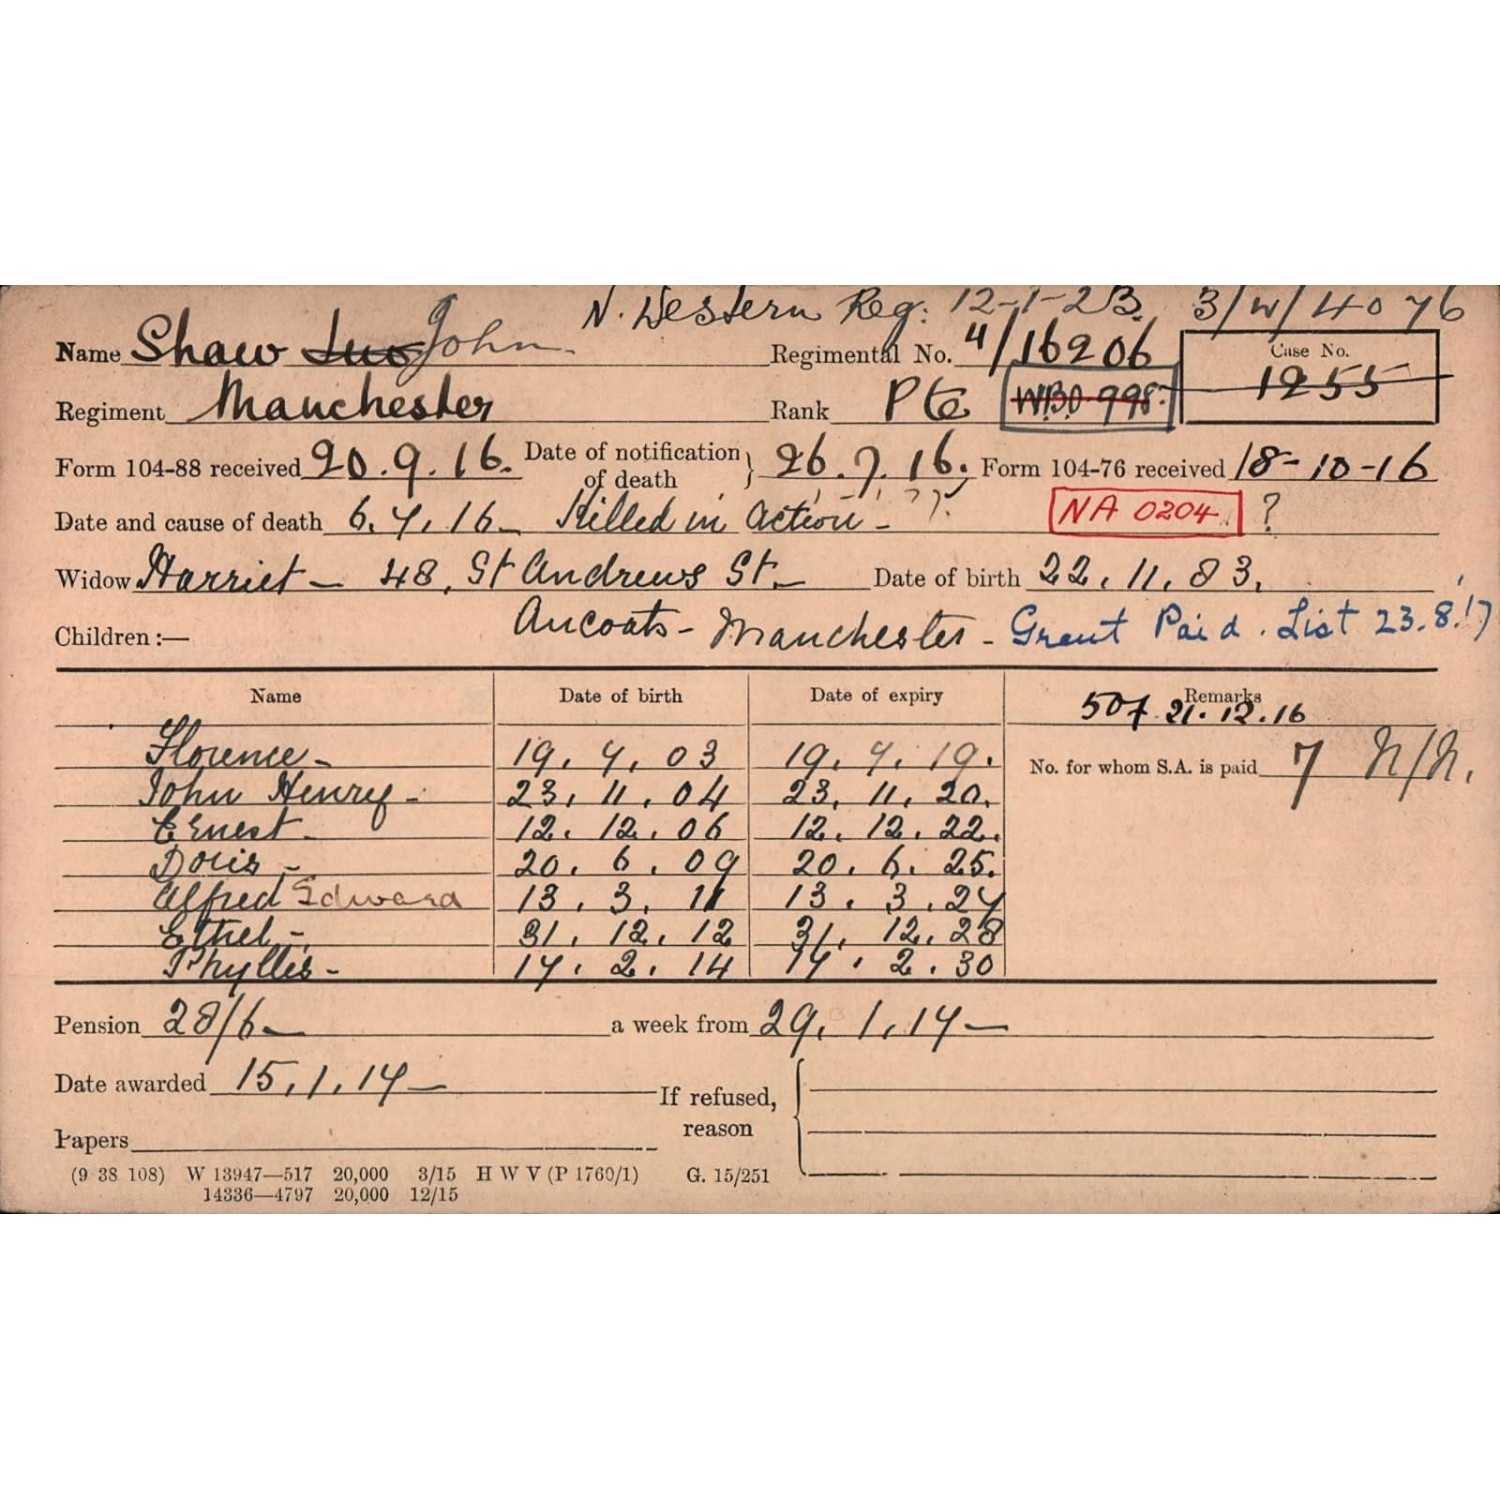 N. Western Reg: 12-1-23. 3/W/4076
Name Shaw John Regimental No. 4/16206 Case No. 1255
Regiment Manchester Rank Pte W.B.O. 998.
Form 104-88 received 20.9.16. Date of notification of death } 26.7.16. Form 104-76 received 18-10-16
Date and cause of death 6.7.16 - Killed in Action - ?. NA 0204 ?
Widow Harriet - 48, St Andrews St. - Date of birth 22.11.83.
Children :— Ancoats - Manchester - Grant Paid. List 23.8.17
Name Date of birth Date of expiry Remarks
507 21.12.16
Florence - 19.7.03 19.7.19. No. for whom S.A. is paid 7 N/N.
John Henry - 23.11.04 23.11.20.
Ernest - 12.12.06 12.12.22.
Doris - 20.6.09 20.6.25.
Alfred Edward 13.3.11 13.3.27
Ethel - 31.12.12 31.12.28
Phyllis - 17.2.14 17.2.30
Pension 28/6 - a week from 29.1.17 -
Date awarded 15.1.17 - If refused, reason
Papers
(9 38 108) W 13947—517 20,000 3/15 H W V (P 1760/1) G. 15/251
14336—4797 20,000 12/15